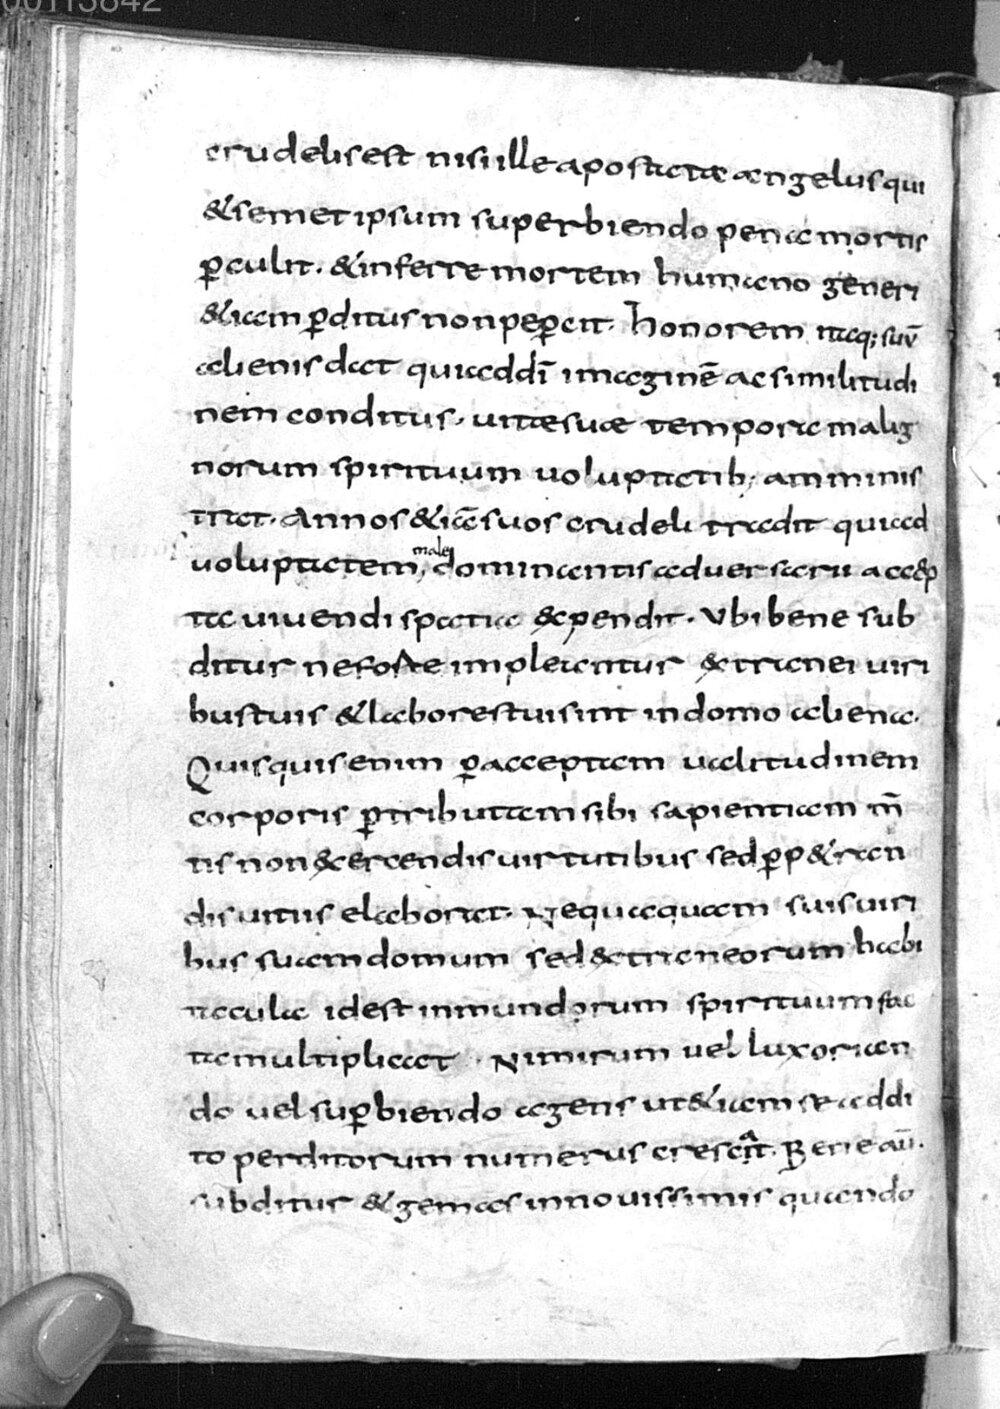 00113842
crudelis est nisi ille apostata angelus qui
& semetipsum superbiendo pena mortis
p̲culit. & inferre mortem humano generi
&iam p̲ditus non pep̲cit. Honorem itaq; suū
alienis dat qui ad dī imaginē ac similitudi
nem conditus. uitae suae tempora malig
norum spirituum uoluptatib; amminis
trat. Annos &iā suos crudeli tradit qui ad
uoluptatem male dominantis aduersarii accep
ta uiuendi spatia expendit. Ubi bene sub
ditur ne forte impleantur extranei uiri
bus tuis & labores tui sint in domo aliena.
Quisquis enim p̲ acceptam ualitudinem
corporis p̲ tributam sibi sapientiam m̄
tis non exercendis uirtutibus sed p̲p&ran
dis uitiis elaborat. Nequaquam suis uiri
bus suam domum sed extraneorum habi
tacula id est inmundorum spirituum fac
ta multiplicat. Nimirum uel luxorian
do uel sup̲biendo agens ut &iam se addi
to perditorum numerus crescat. Bene aū.
subditur & gemas in nouissimis quando